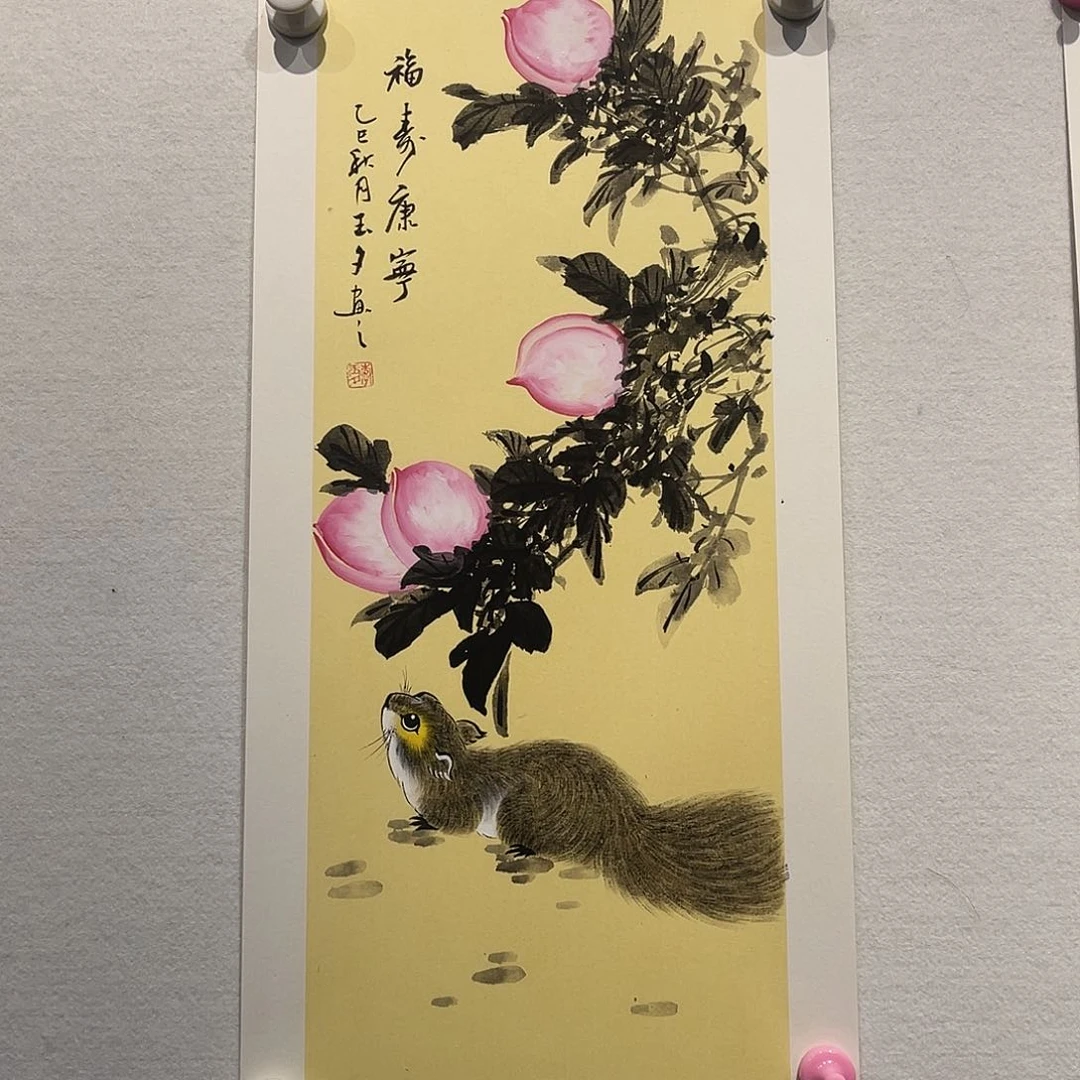 福寿康寧
乙巳秋月玉夕画之